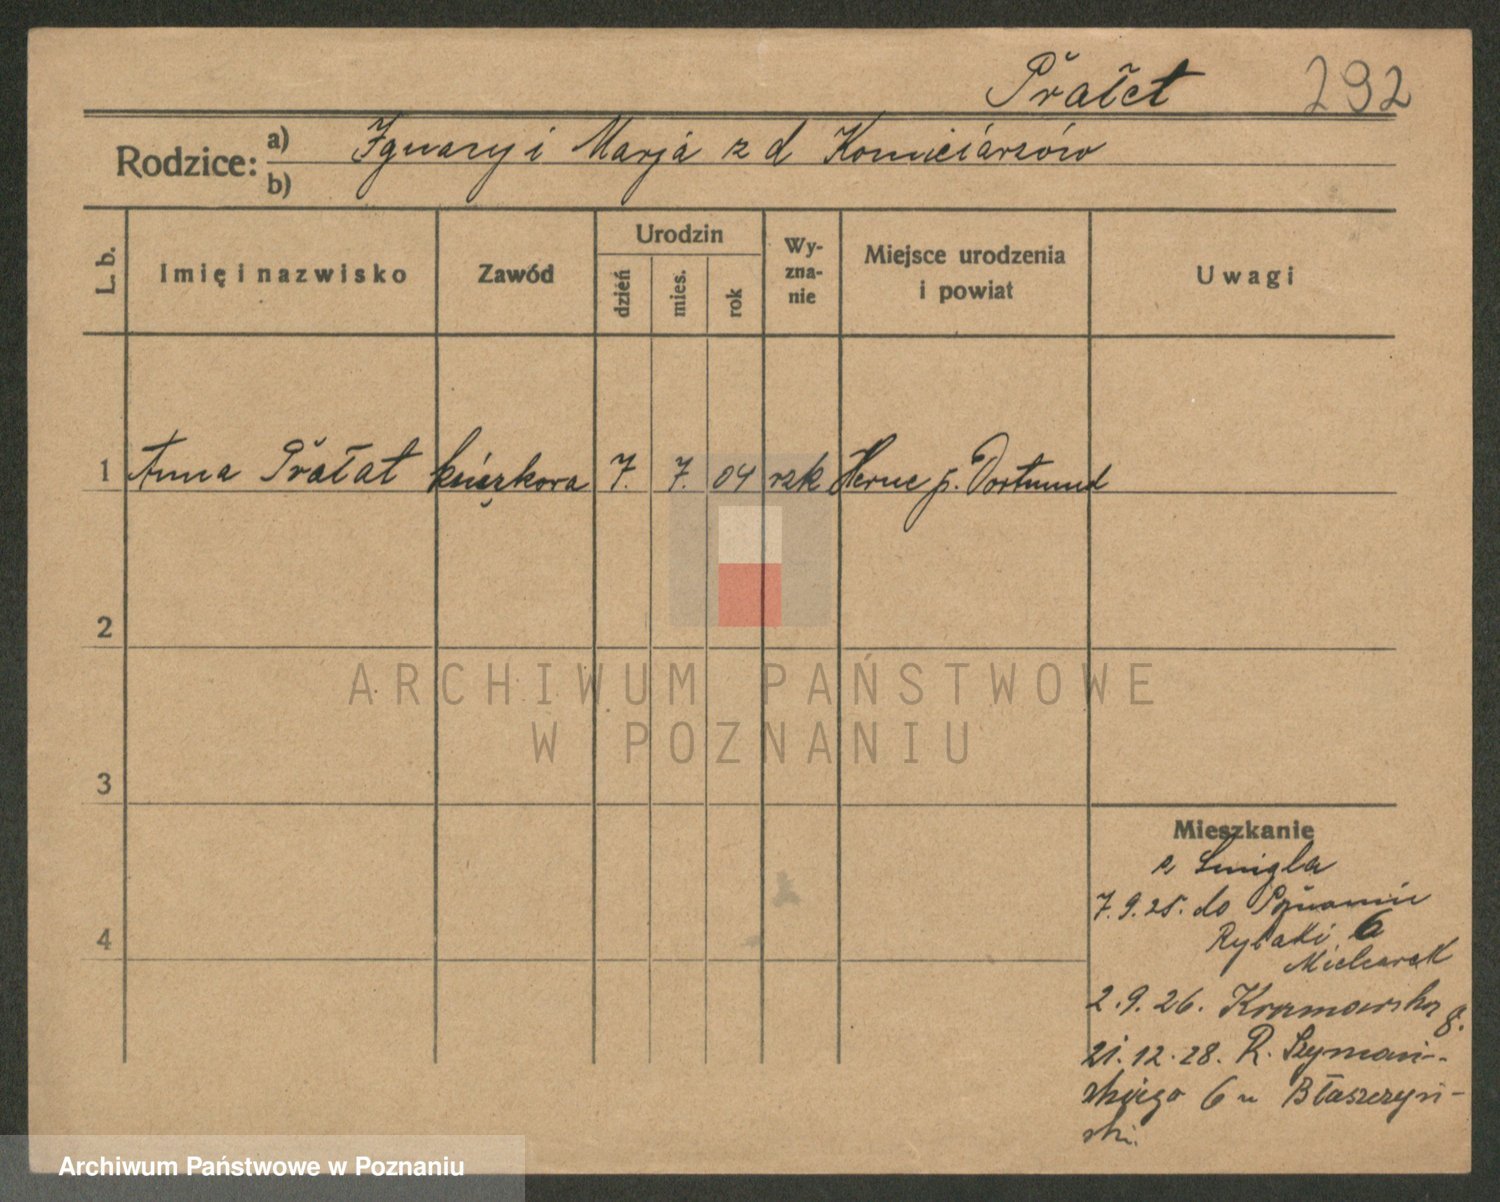 Prałat 292
Rodzice: a) Ignacy i Marja z d Komiciarzów
b)
L. b. Imię i nazwisko Zawód Urodzin dzień mies. rok Wyzna-nie Miejsce urodzenia i powiat Uwagi
1 Anna Prałat książkowa 7. 7. 04 rzk Herne p. Dortmund
2
3
4
Mieszkanie
z Śmigla
7.9.25. do Poznania
Rybaki 6
Mielcarek
2.9.26. Kramarska 8.
21.12.28. R. Szymań-
skiego 6 u Błaszczyń-
ski.
ARCHIWUM PAŃSTWOWE
W POZNANIU
Archiwum Państwowe w Poznaniu